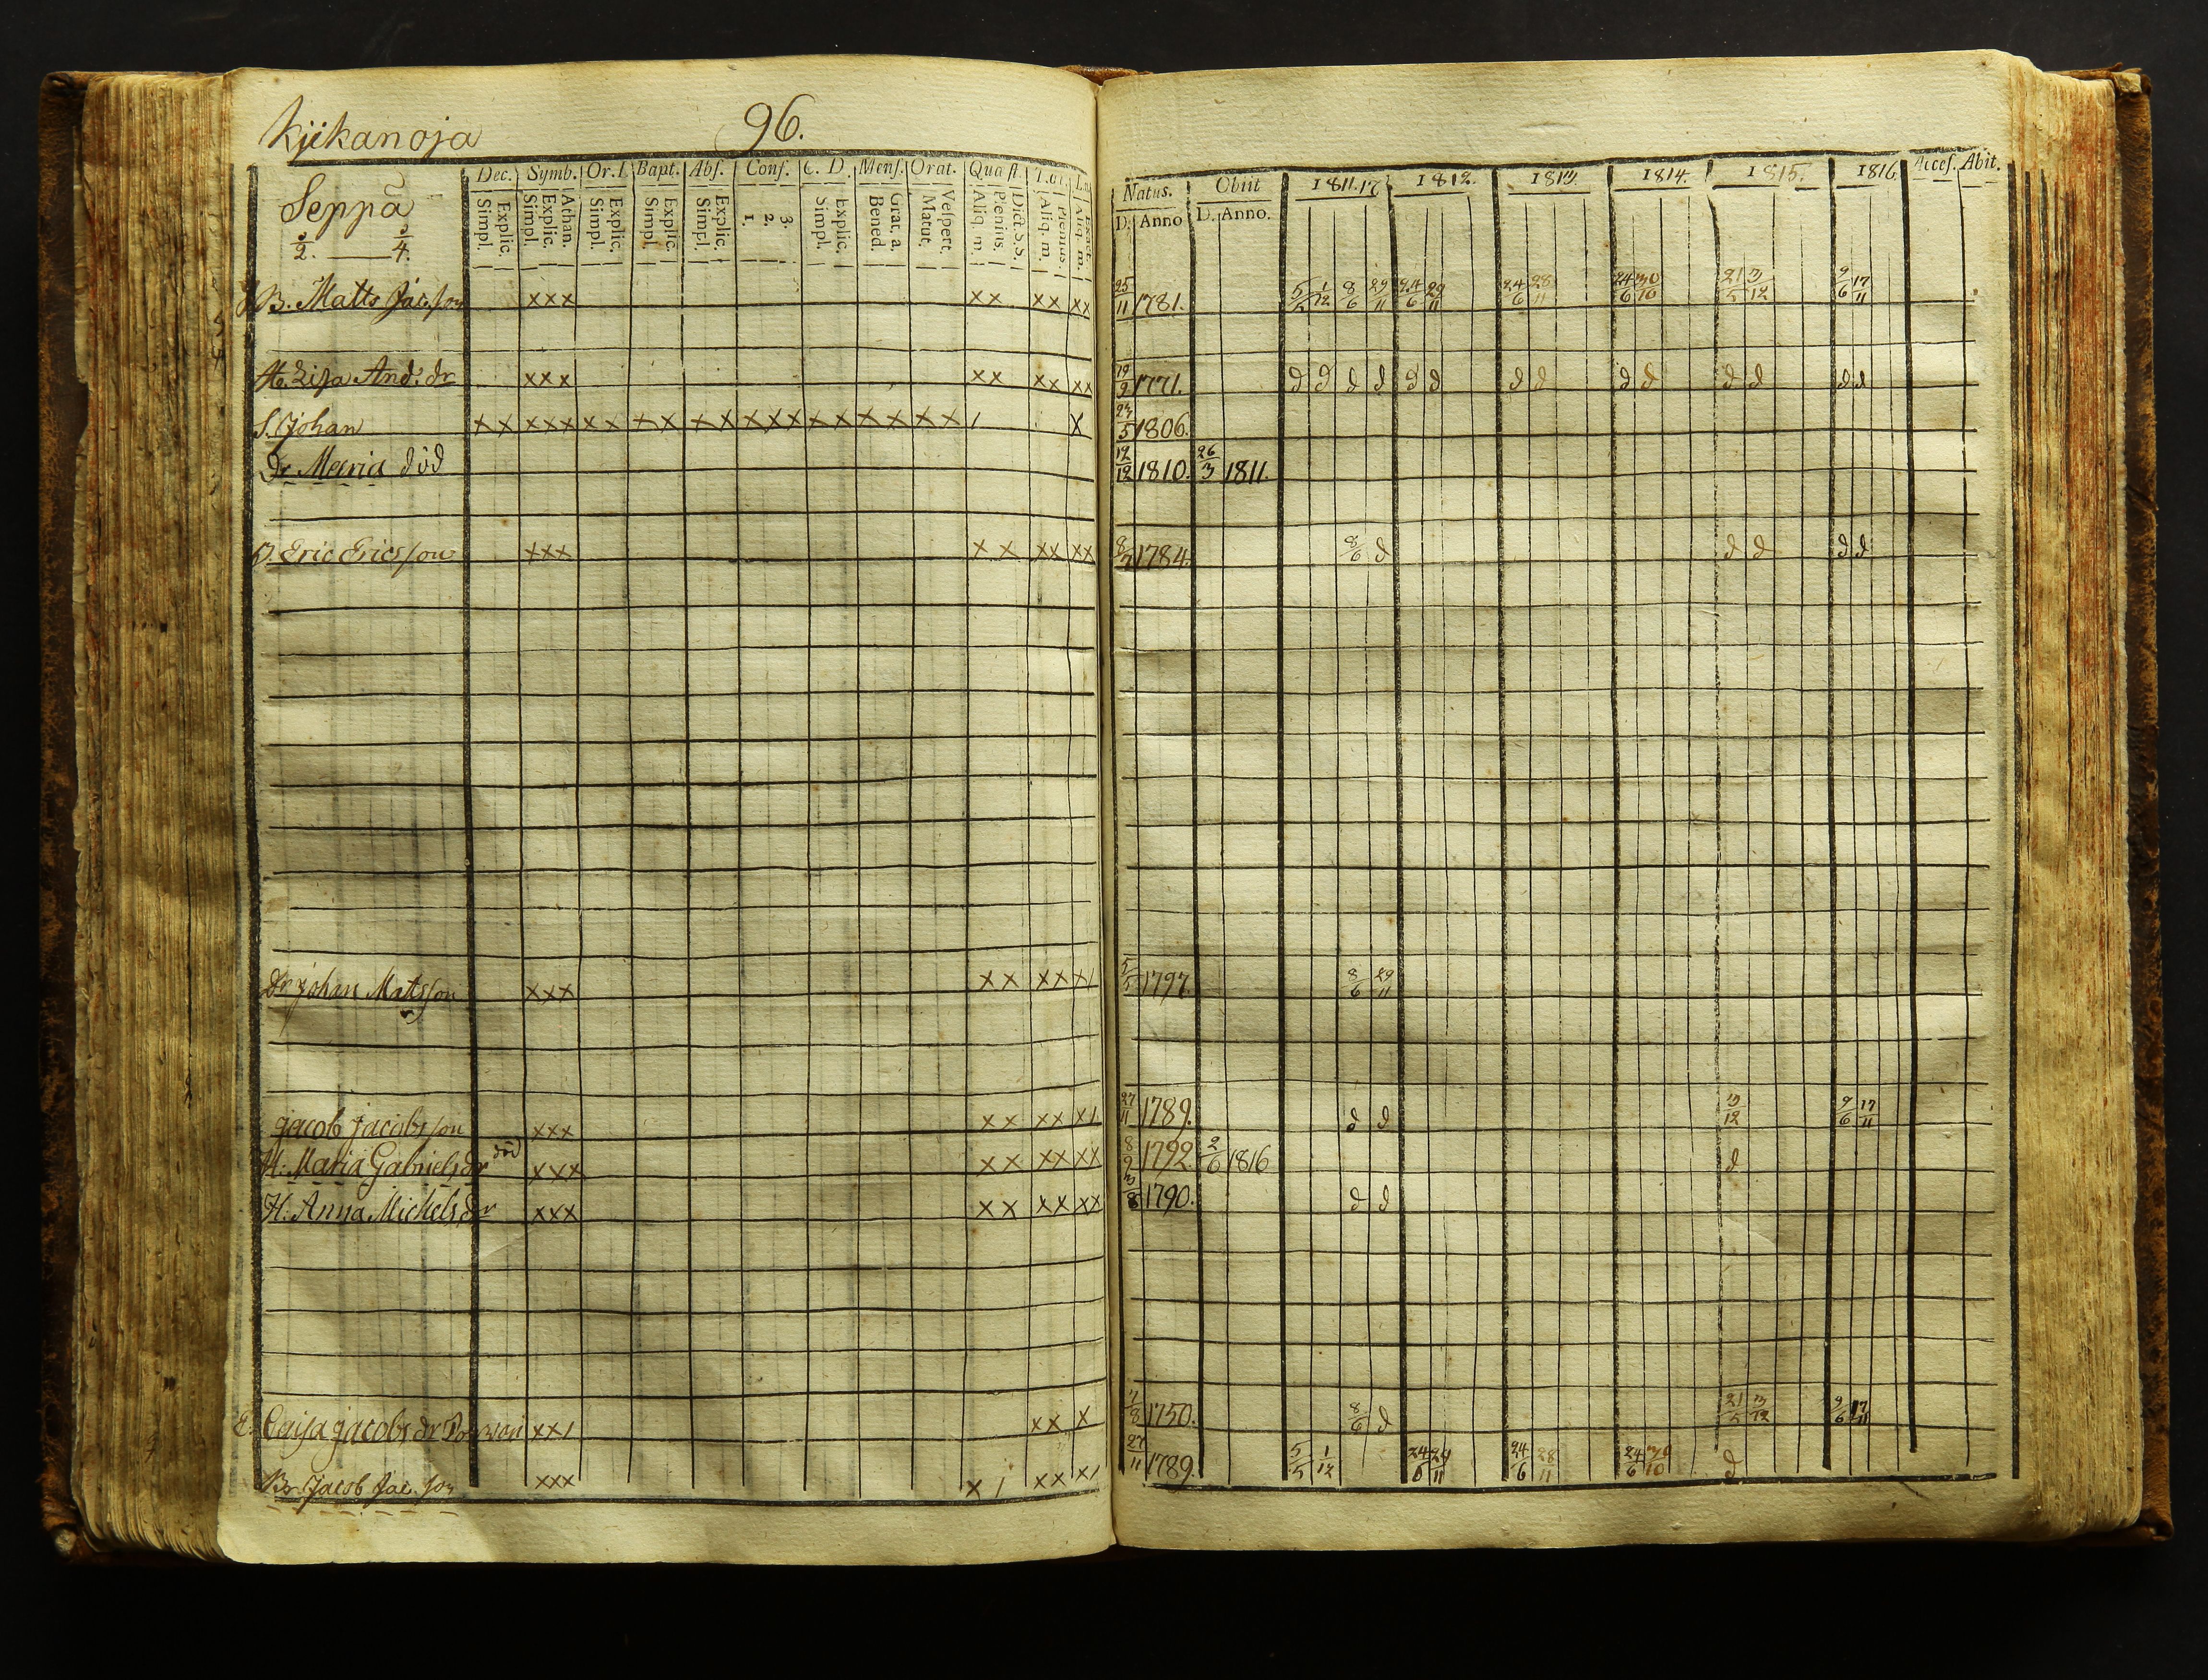 Kjikanoja 96.
Dec. Symb. Or. D. Bapt. Abs. Conf. C. D. Mens. Orat. Quæst.
Simpl. Explic. Simpl. Explic. Athan. Simpl. Explic. Simpl. Explic. Simpl. Explic. 1. 2. 3. Simpl. Explic. Bened. Grat. a. Matut. Vespert. Aliq. m. Plenius. Dict. S. S. Aliq. m. Plenius. Aliq. m.
Natus. Obiit 1811.12 1812. 1813. 1814. 1815. 1816 Acces. Abit.
D. Anno D. Anno.
Seppä
3/2. 3/4.
B. Matts Jac. son xxx xx xx xx 25/11 1781. 5/5 1/12 8/6 29/11 24/6 29/11 24/6 28/11 24/6 30/10 21/5 3/12 9/6 17/11
H. Lisa And. dr xxx xx xx xx 19/9 1771. d d d d d d d d d d d d d d
S. Johan x x x x x x x x x x x x x x x x x x x x / x 23/5 1806.
Dr Maria död 12/12 1810. 26/3 1811.
D. Eric Ericsson xxx x x xx xx 1784. 8/6 d d d d d
Dr Johan Matsson xxx x x xx x/ 5/5 1797. 8/6 29/11
Jacob Jacobsson xxx x x xx x/ 27/11 1789. d d 3/12 9/6 17/11
H: Maria Gabrielsdr död xxx x x xx xx 8/9 1792. 2/6 1816 d
H: Anna Michelsdr xxx x x xx xx 3/8 1790. d d
E. Caisa Jacobs dr xx/ xx x 1750. 8/6 d 21/5 3/12 9/6 17/11
Br Jacob Jac. son xxx x / xx x/ 27/11 1789. 5/5 1/12 24/6 29/11 24/6 28/11 24/6 30/10 d